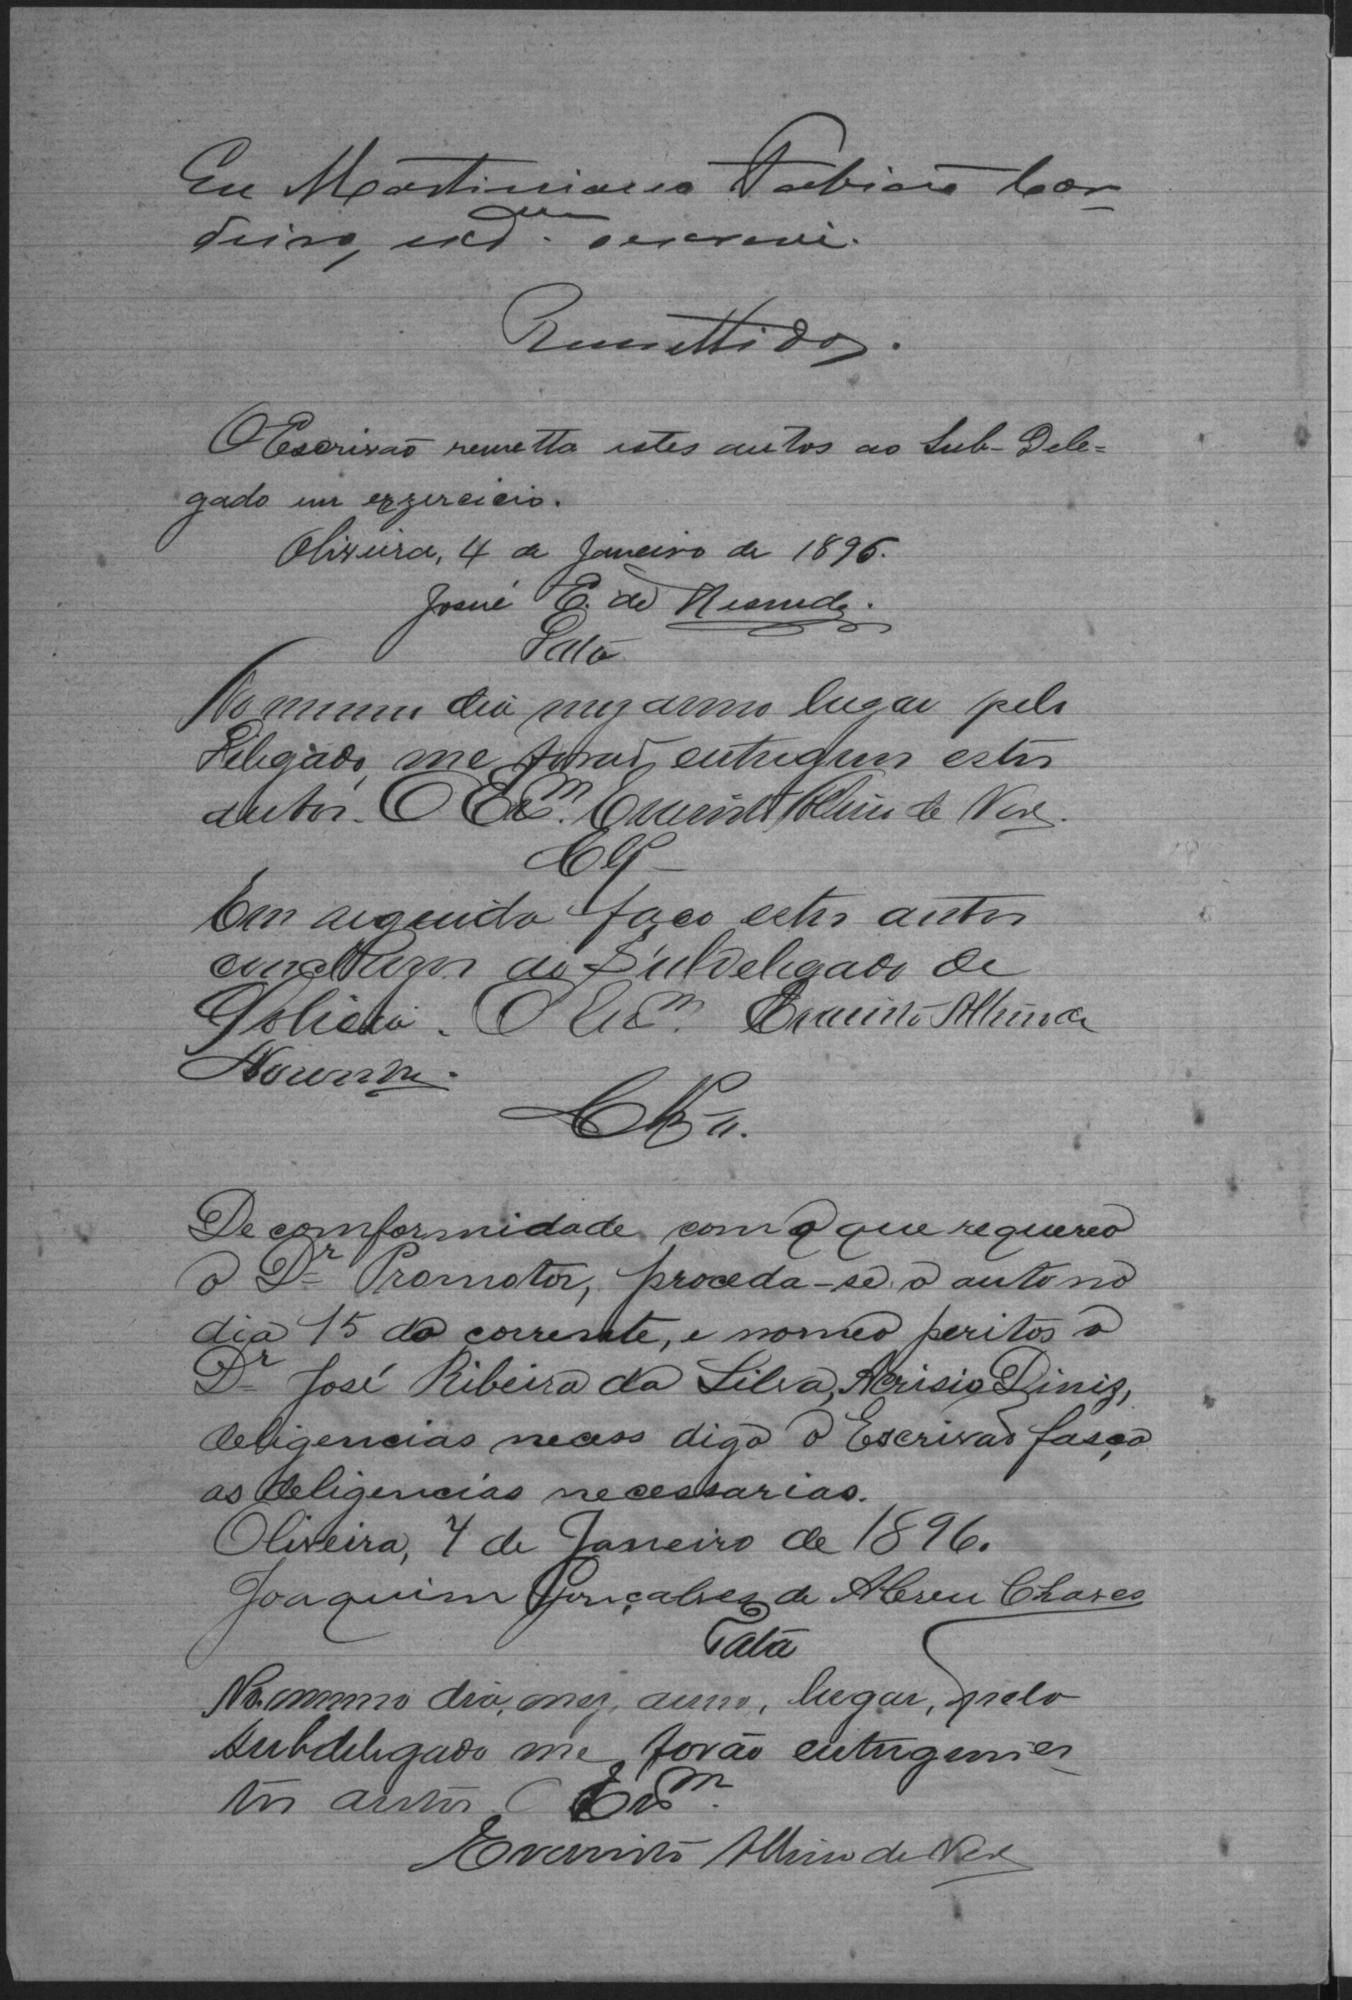 Eu Martiniano Fabiano Cor-
deiro, escr.am o escrevi.
Remettidos.
O Escrivão remetta estes autos ao Sub-Dele=
gado em exzercicio.
Oliveira, 4 de Janeiro de 1896.
Josué E. de Resende.
Data
No mesmo dia mez anno lugar pelo
Delegado, me forão entregues estes
autos. O Escm. Evaristo Albino de
Cls
Em seguida faço estes autos
conclusos ao Subdelegado de
Policia. O Escm. Evaristo Albino de
Clsos.
De comformidade com o que requereo
o Dr. Promotor, proceda-se o auto no
dia 15 do corrente, e nomeo peritos o
Dr. José Ribeiro da Silva, Acrisio Diniz,
deligencias necess digo o Escrivão fasça
as deligencias necessarias.
Oliveira, 4 de Janeiro de 1896.
Joaquim Gonçalves de Abreu Chaves
Data
No mesmo dia, mez, anno, lugar, pelo
subdelegado me forão entregues es
tes autos O Escm.
Evaristo Albino de